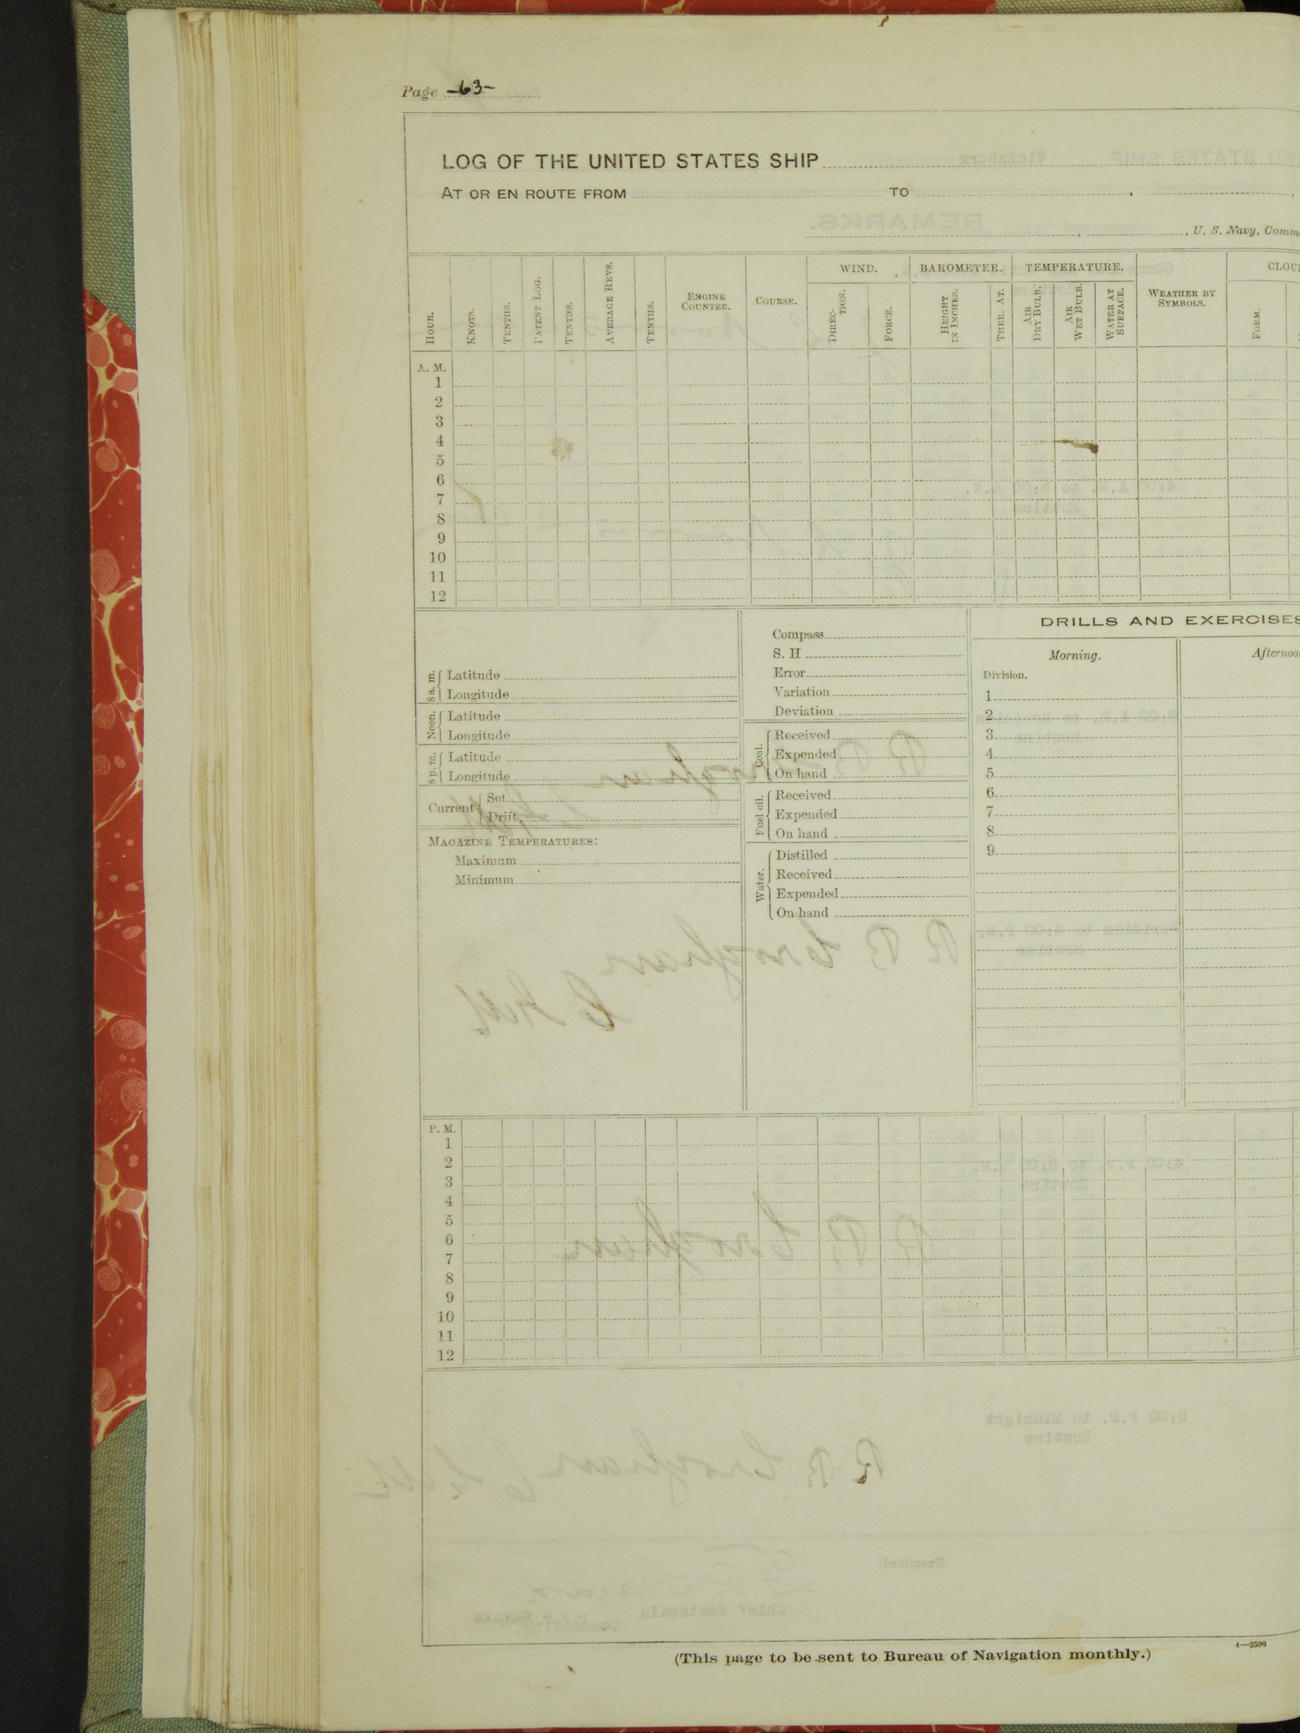 Page -63-
LOG OF THE UNITED STATES SHIP
AT OR EN ROUTE FROM TO ,
, U. S. Navy, Comm
HOUR. KNOTS. TENTHS. PATENT LOG. TENTHS. AVERAGE REVS. TENTHS. ENGINE COUNTER. COURSE. WIND. BAROMETER. TEMPERATURE. WEATHER BY SYMBOLS. CLOU
DIRECTION. FORCE. HEIGHT IN INCHES. THER. AT. AIR DRY BULB. AIR WET BULB. WATER AT SURFACE. FORM.
A. M.
1
2
3
4
5
6
7
8
9
10
11
12
8 a. m. Latitude
Longitude
Noon. Latitude
Longitude
8 p. m. Latitude
Longitude
Current Set
Drift
MAGAZINE TEMPERATURES:
Maximum
Minimum
Compass
S. H
Error
Variation
Deviation
Coal. Received
Expended
On hand
Fuel oil. Received
Expended
On hand
Water. Distilled
Received
Expended
On hand
DRILLS AND EXERCISES
Morning. Afternoo
Division.
1
2
3
4
5
6
7
8
9
P. M.
1
2
3
4
5
6
7
8
9
10
11
12
4—2599
(This page to be sent to Bureau of Navigation monthly.)